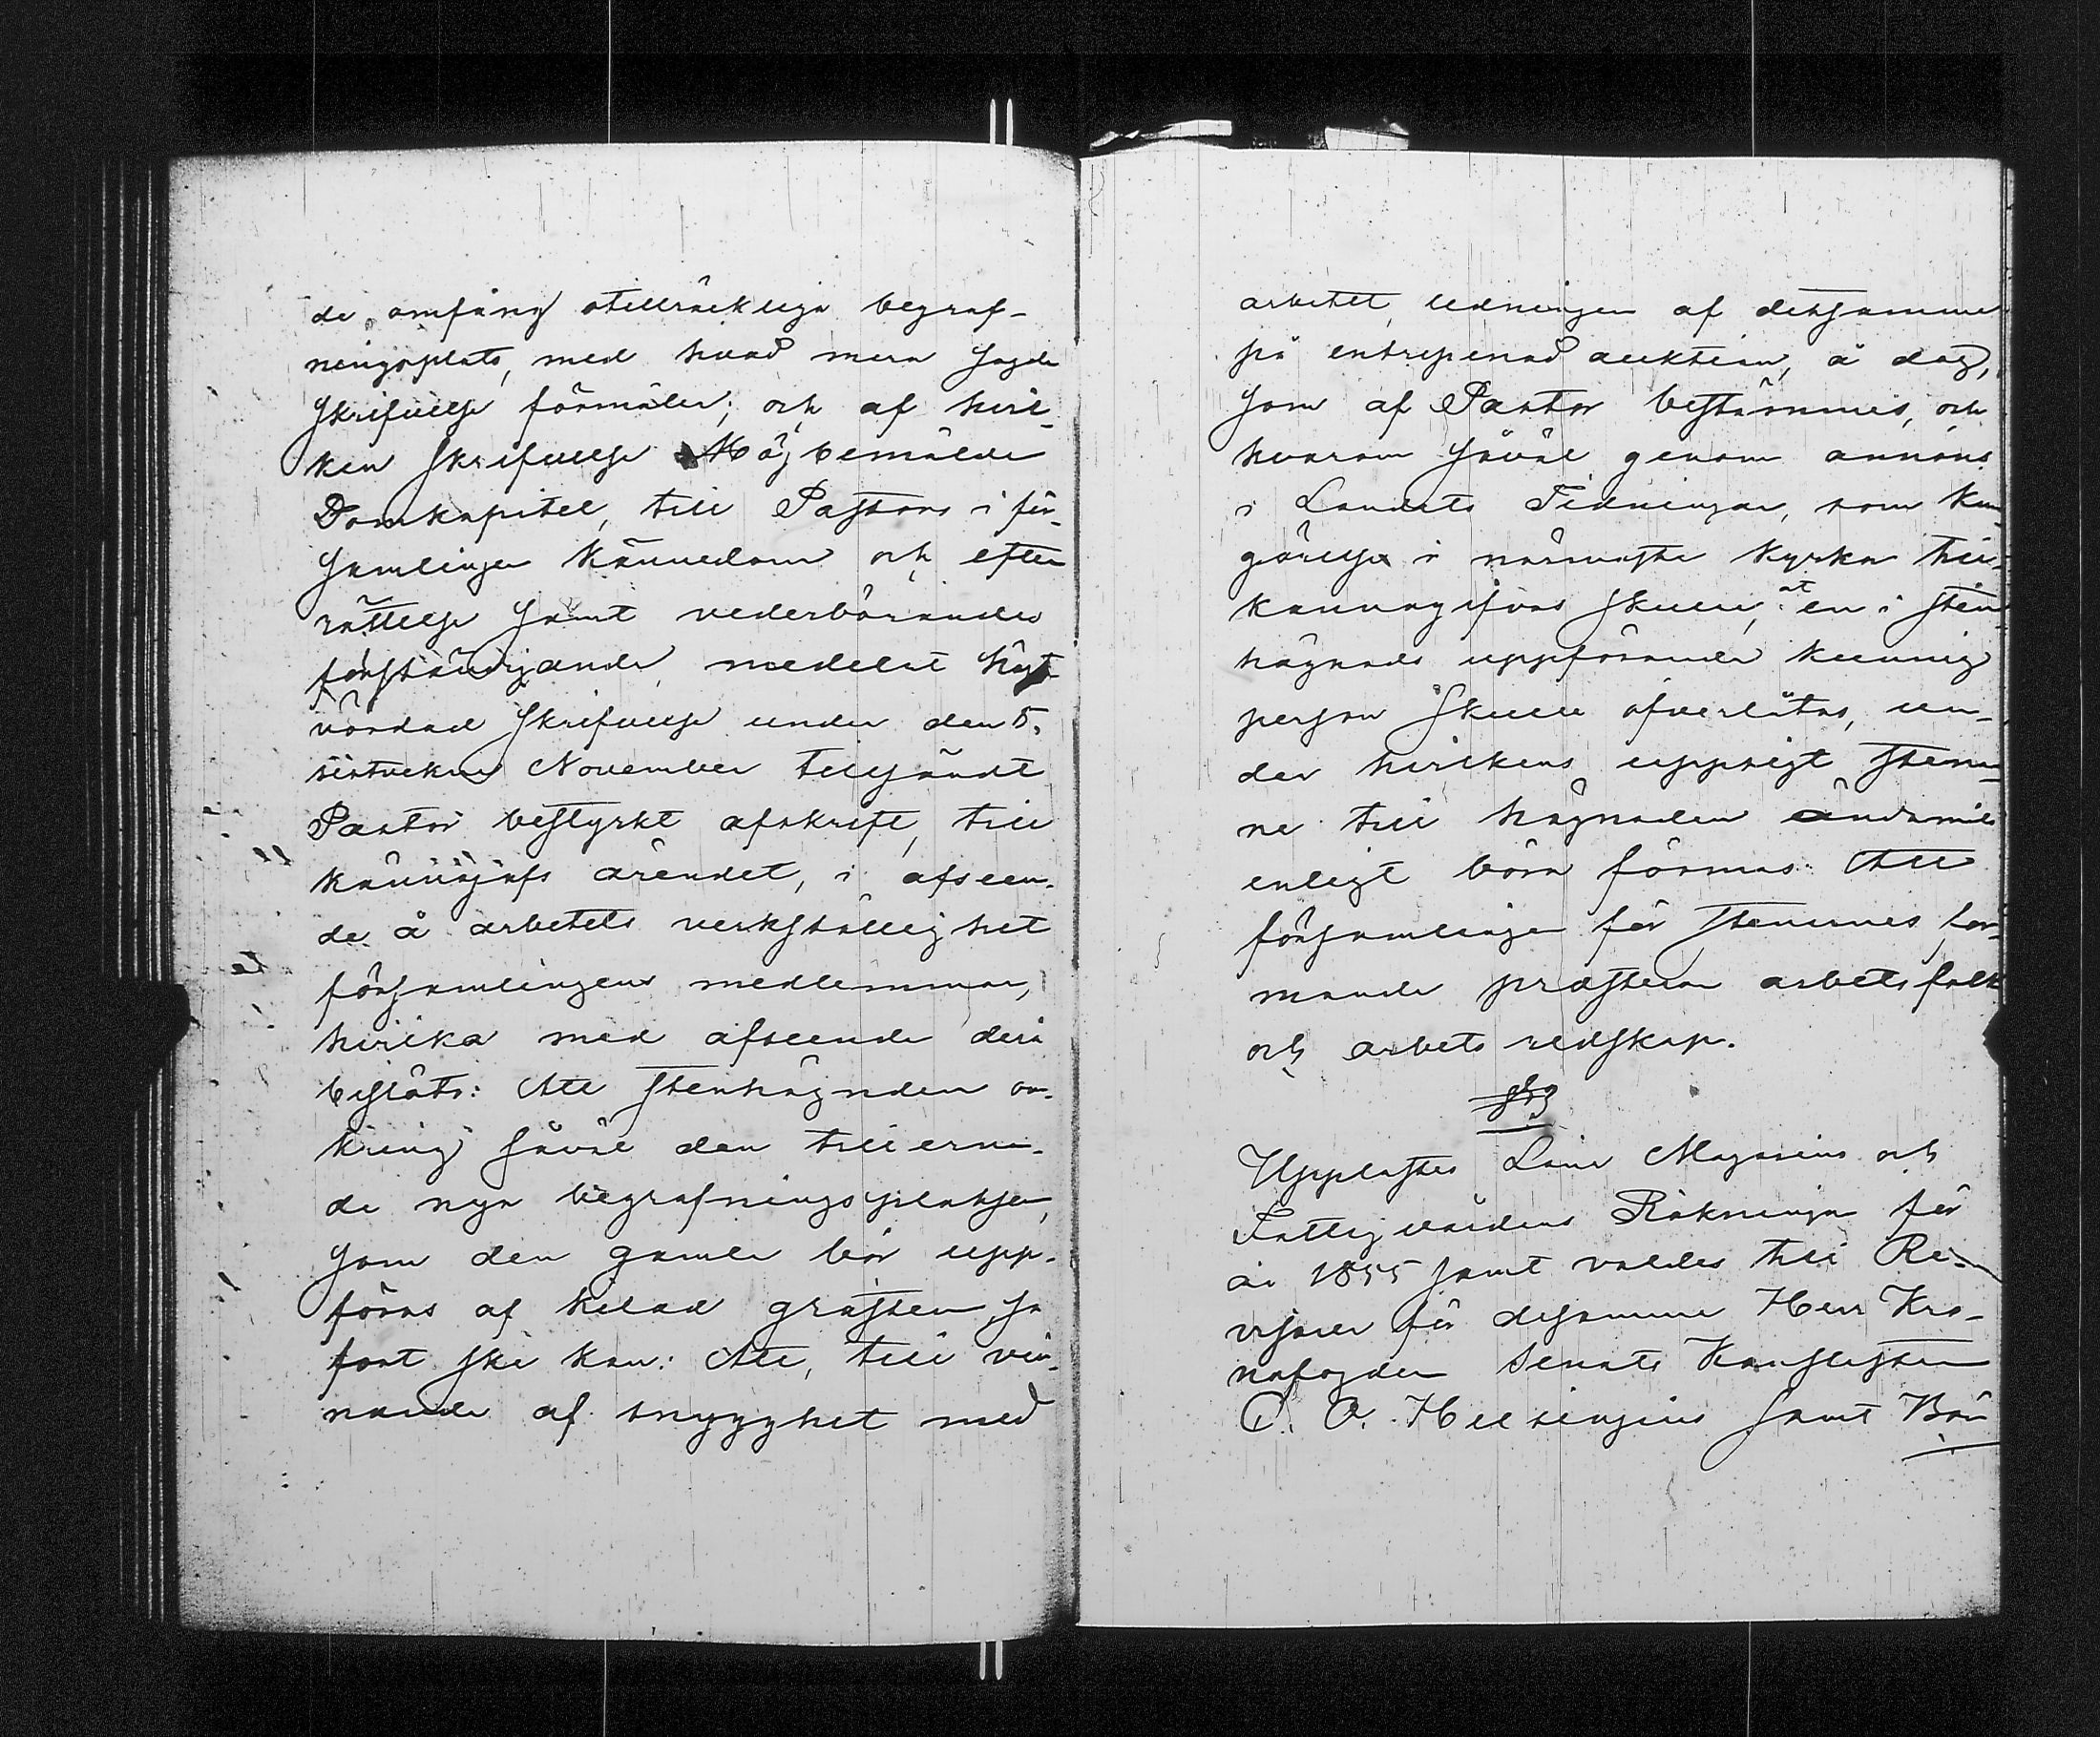 de omfång otillräckliga begraf-
ningsplats, med hvad mera sagde
skrifvelse förmäler; och af hvil-
ken skrifvelse Högbemälde
Domkapitel, till Pastors i för-
samlingen kännedom och efter-
rättelse samt vederbörandes
förständigande, medelst högt
vördad skrifvelse under den 5.
sistvekne November tillsändt
Pastor bestyrkt afskrift, till
kännagafs ärendet, i afseen-
de å arbetets verkställighet
församlingens medlemmar,
hvilka med afseende derå
beslöto: Att stenhägnden om-
kring såväl den tillerna-
de nya begrafningsplatsen,
som den gamla bör upp-
föras af kilad gråsten, så
fort ske kan: Att, till vin-
nande af snygghet med
arbetet, ledningen af detsamma
på entreprenad auktion, å dag,
som af Pastor bestämmes, och
hvarom såväl genom annons
i Landets Tidningar, som kun-
görelse i närmaste kyrkor till-
kännagifvas skulle, at en i sten
hägnads uppförande kunnig
person skulle öfverlåtas, un-
der hvilkens uppsigt stenar-
ne till hägnaden ändamåls
enligt böra formas: Att
församlingen för stenarnes for-
mande præsterar arbetsfolk
och arbets redskap.
§ 3
Upplästes Låne Magasins och
Fattigvårdens Räkningar för
år 1855 samt valdes till Re-
visorer för desamma Herr Kro-
nofogden Senats Kanslisten
C. A. Helsingius samt Bön